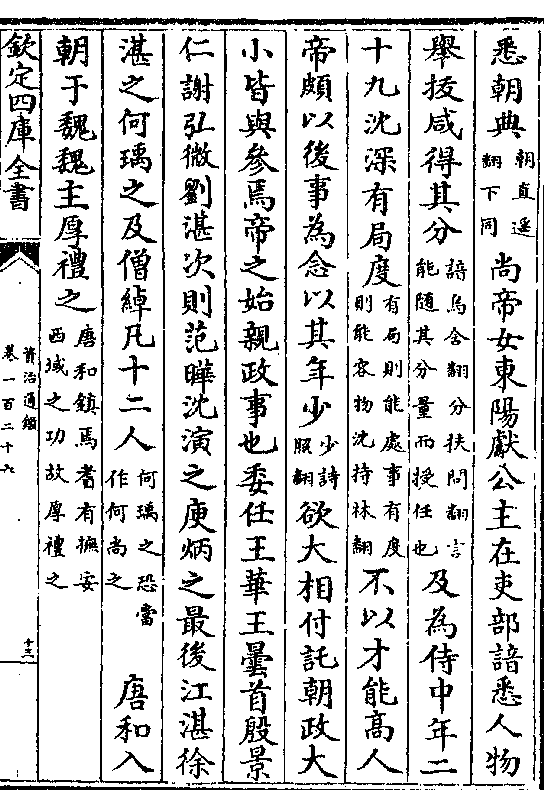 悉朝典朝直遥翻下同尚帝女東陽獻公主在吏部諳悉人物
舉拔咸得其分諳烏含翻分扶問翻言能隨其分量而授任也及為侍中年二
十九沈深有局度有局則能處事有度則能容物沈持林翻不以才能高人
帝頗以後事為念以其年少少詩照翻欲大相付託朝政大
小皆與參焉帝之始親政事也委任王華王曇首殷景
仁謝弘微劉湛次則范曄沈演之庾炳之最後江湛徐
湛之何瑀之及僧綽凡十二人何瑀之恐當作何尚之唐和入
朝于魏魏主厚禮之唐和鎮焉耆有撫安西域之功故厚禮之
欽定四庫全書
資治通鑑
卷一百二十六
十三